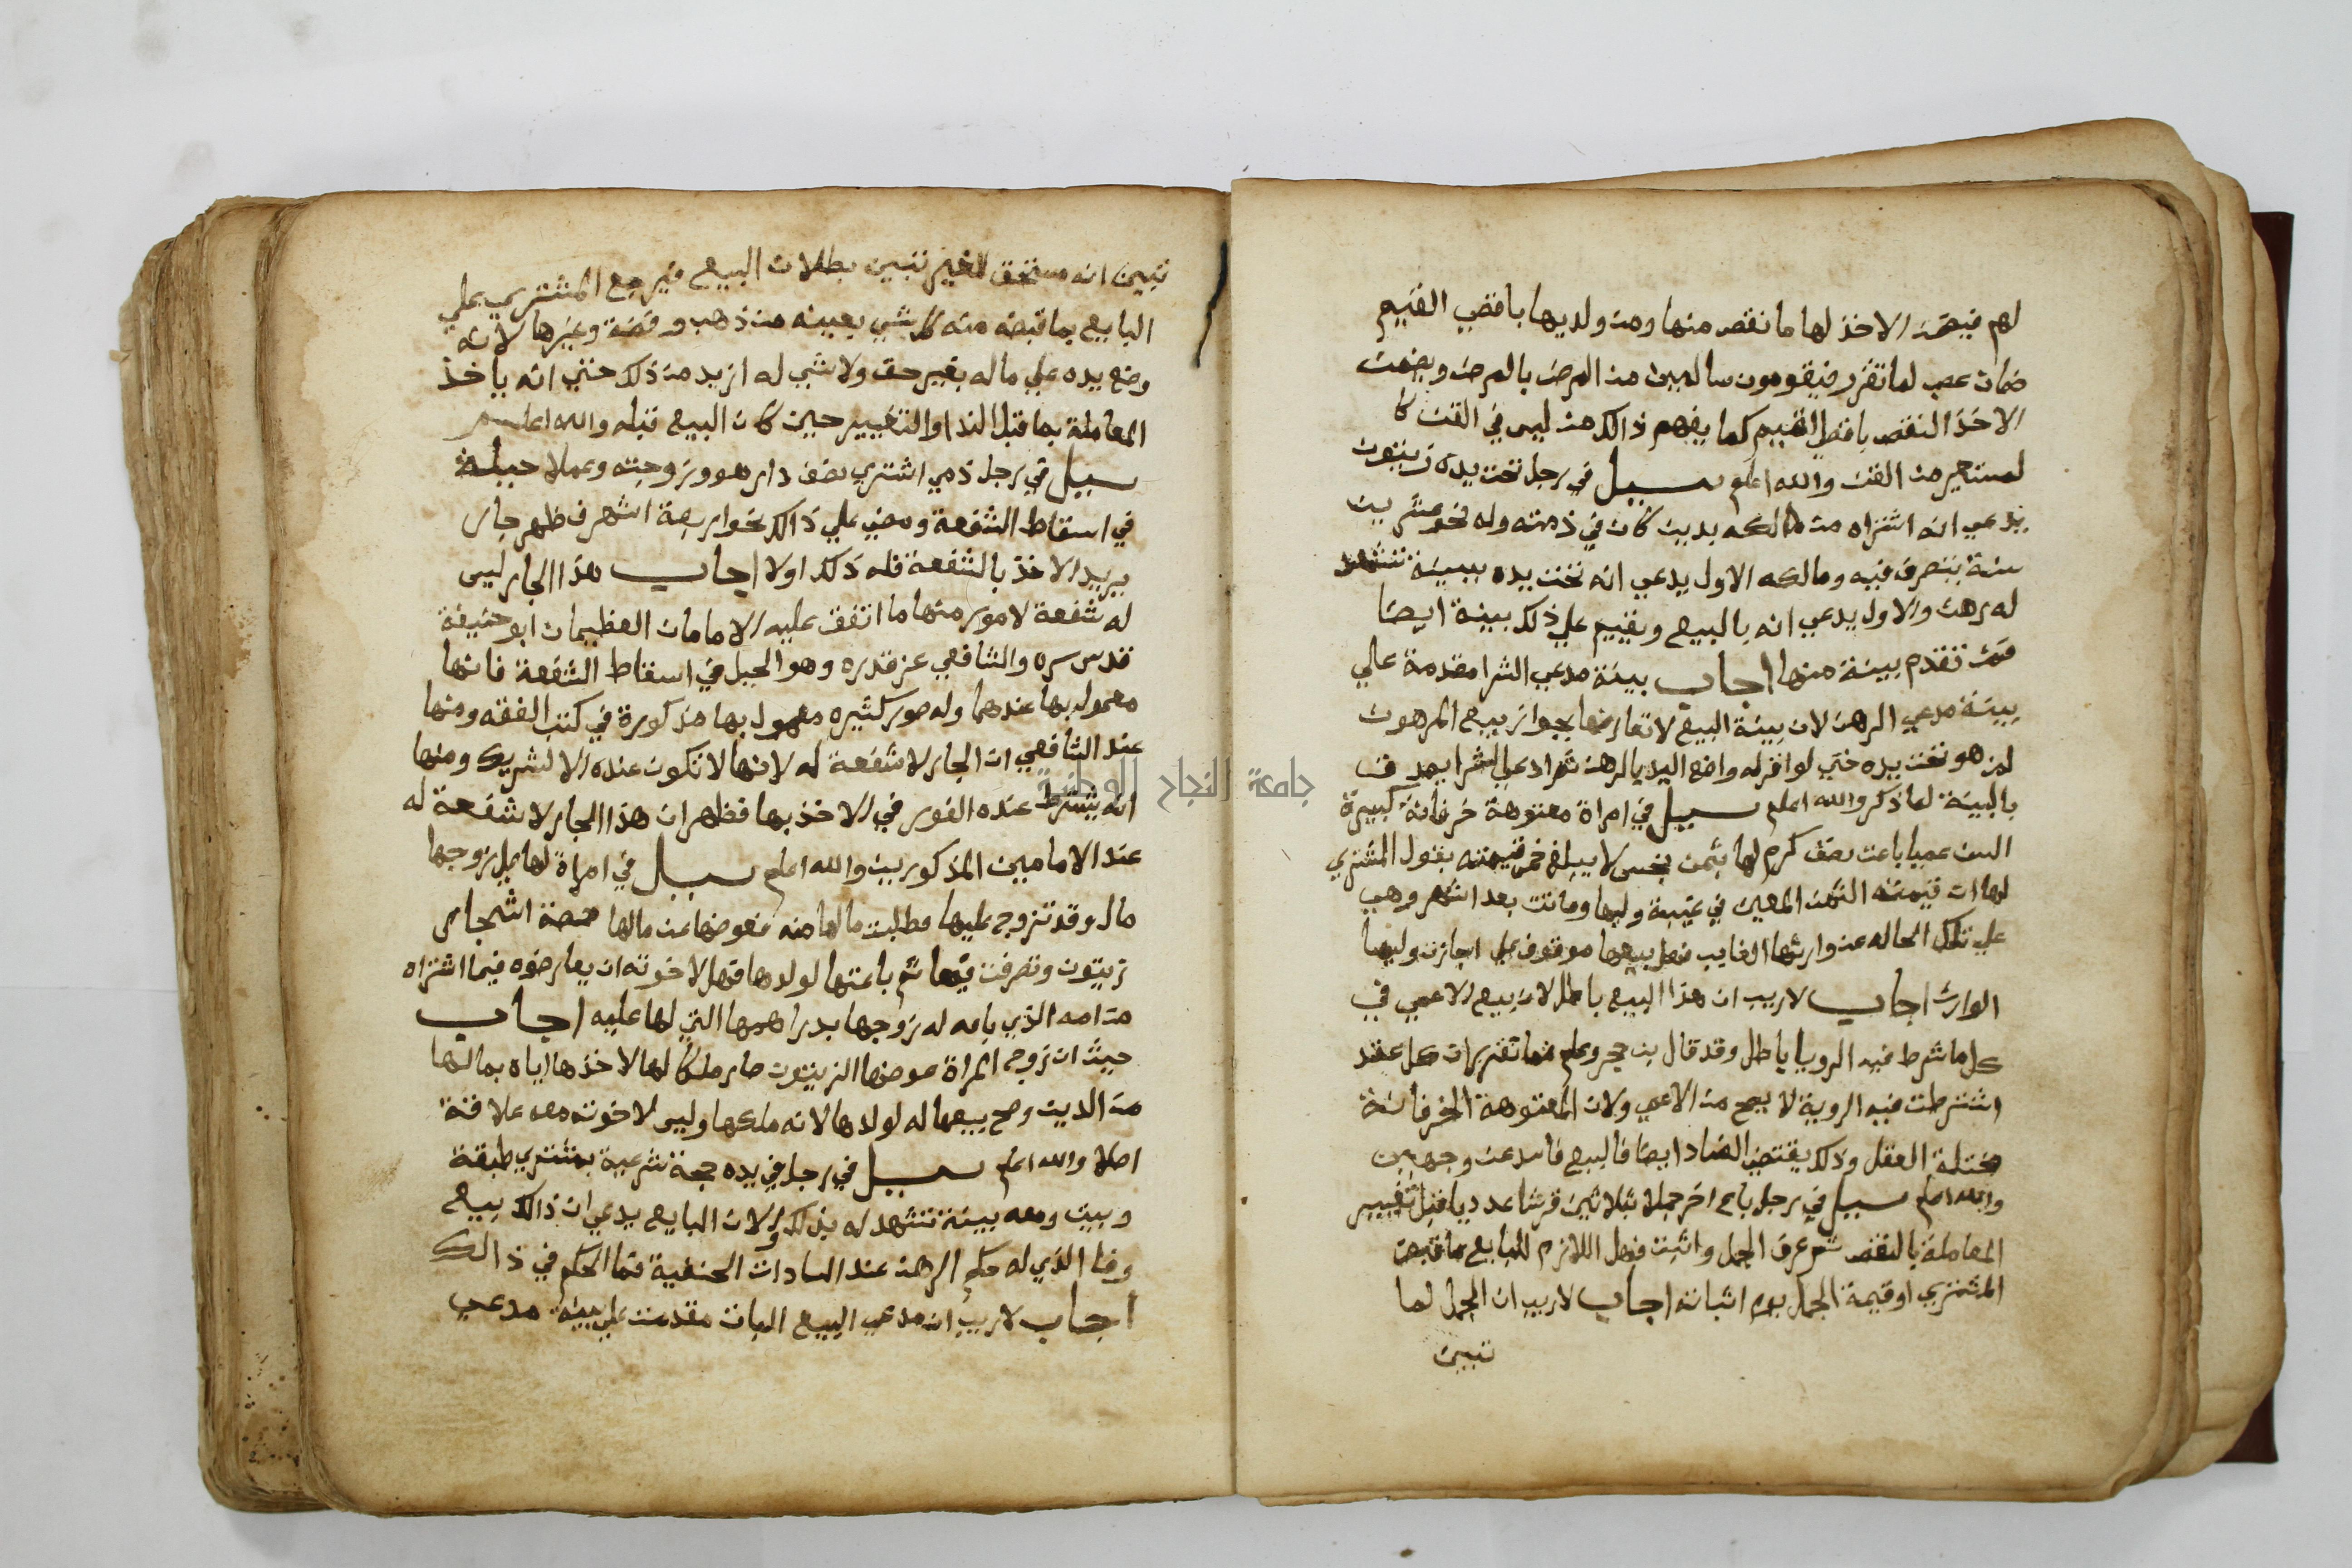 لهم فيضمن الاخذ لها ما نقص منها ومن ولديها باقصي القيم
ضمان غصب لما تقرر فيقومون سالمين من المرض بالمرض ويضمن
الاخذ النقص باقصي القيم كما يفهم ذالك من ليس في الفن كا
لمستعير من الفن والله اعلم سيل في رجل تحت يده زيتون
يدعي انه اشتراه من مالكه بدين كان في ذمته وله نحو عشرين
سنة يتصرف فيه ومالكه الاول يدعي انه تحت يده ببينة تشهد
له رهن والاول يدعي انه بالبيع ويقيم علي ذلك بينة ايضا
فمن تقدم بينة منها اجاب بينة مدعي الشرا مقدمة علي
بينة مدعي الرهن لان بينة البيع لا تعارضها بجواز بيع المرهون
لمن هو تحت يده حتي لو اقر له واضع اليد بالرهن ثم ادعي الشرا يصدق
بالبينة لما ذكر والله اعلم سيل في امراة معتوهة خرفانة كبيرة
السن عميا باعت نصف كرم لها بثمن بخس لا يبلغ خمس قيمته بقول المشتري
لها ان قيمته الثمن المعين في غيبة وليها وماتت بعد اشهر وهي
علي تلك الحاله عن وارثها الغايب فهل بيعها موقوف علي اجازت وليها
الوارث اجاب لا ريب ان هذا البيع باطل لان بيع الاعمي في
كل ما شرط فيه الرويا باطل وقد قال بن حجر وعلم مما تقرر ان كل عقد
اشترطت فيه الروية لا يصح من الاعمي ولان المعتوهة الخرفانة
مختلة العقل وذلك يقتضي الفساد ايضا فالبيع فاسد من وجهين
والله اعلم سيل في رجل باع اخر جملا بثلاثين قرشا عدديا قبل تغيير
المعاملة بالنقص ثم عرف الجمل واثبت فهل اللازم للبايع ما قبض
المشتري او قيمة الجمل يوم اثباته اجاب لا ريب ان الجمل لما
تبين
تبين انه مستحق للغير تبين بطلان البيع فيرجع المشتري علي
البايع بما قبضه منه كل شي بعينه من ذهب وفضة وغيرها لانه
وضع يده علي ماله بغير حق ولا شي له ازيد من ذلك حتي انه ياخذ
المعاملة بما قبل الندا والتغيير حين كان البيع قبله والله اعلم
سيل في رجل ذمي اشتري نصف دار هو وزوجته وعملا حيلة
في اسقاط الشفعة ومضي علي ذالك نحو اربعة اشهر ف ظهر جار
يريد الاخذ بالشفعة فله ذلك او لا اجاب هذا الجار ليس
له شفعة لامور منها ما اتفق عليه الامامان العظيمان ابو حنيفة
قدس سره والشافعي عز قدره وهو الحيل في اسقاط الشفعة فانها
معمول بها عندهما وله صور كثيره معمول بها مذكورة في كتب الفقه ومنها
عند الشافعي ان الجار لا شفعة له لانها لا تكون عنده الا لشريك ومنها
انه يشترط عنده الفور في الاخذ بها فظهر ان هذا الجار لا شفعة له
عند الامامين المذكورين والله اعلم سيل في امراة لها علي زوجها
مال وقد تزوج عليها فطلبت مالها منه فعوضها عن مالها حصة اشجار
زيتون وتصرفت فيها ثم باعتها لولدها فهل لاخوته ان يعارضوه فيما اشتراه
من امه الذي باعه له زوجها بدراهمها التي لها عليه اجاب
حيث ان زوج المراة عوضها الزيتون صار ملكا لها لاخذها اياه بمالها
من الدين وصح بيعها له لولدها لانه ملكها وليس لاخوته معه علاقة
اصلا والله اعلم سيل في رجل في يده حجة شرعية بمشتري طبقة
وبيت ومعه بينة تشهد له بذلك والان البايع يدعي ان ذالك بيع
وفا الذي له حكم الرهن عند السادات الحنفية فما الحكم في ذالك
اجاب لا ريب ان مدعي البيع البات مقدمت علي بينة مدعي
جامعة النجاح الوطنية